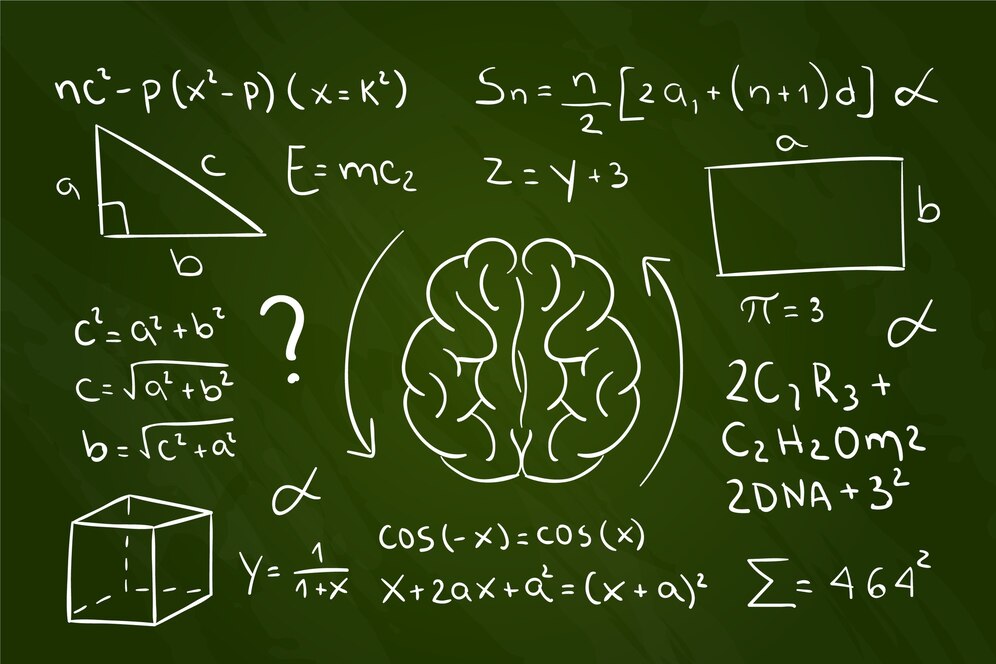 nc²-p(x²-p)(x=K²)
Sn=n/2[2a₁+(n+1)d] α
a
c
b
E=mc₂
Z=y+3
a
b
c²=a²+b²
c=√a²+b²
b=√c²+a²
?
π=3
α
2C₇R₃+
C₂H₂Om2
2DNA+3²
α
Y=1/1+x
cos(-x)=cos(x)
x+2ax+a²=(x+a)²
Σ=464²